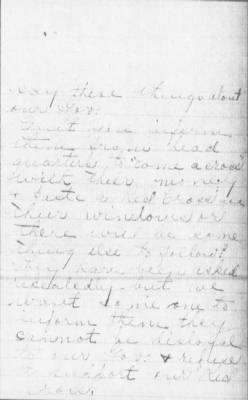 say these things about
our Gov.
Can't you inform
them from head
quarters to "come across"
with their money
& paste a Red Cross in
their windows or
there will be some
thing else to follow?
They have been asked
repeatedly but we
want some one to
inform them they
cannot be disloyal
to our Gov. & refuse
to support our Red
Cross.